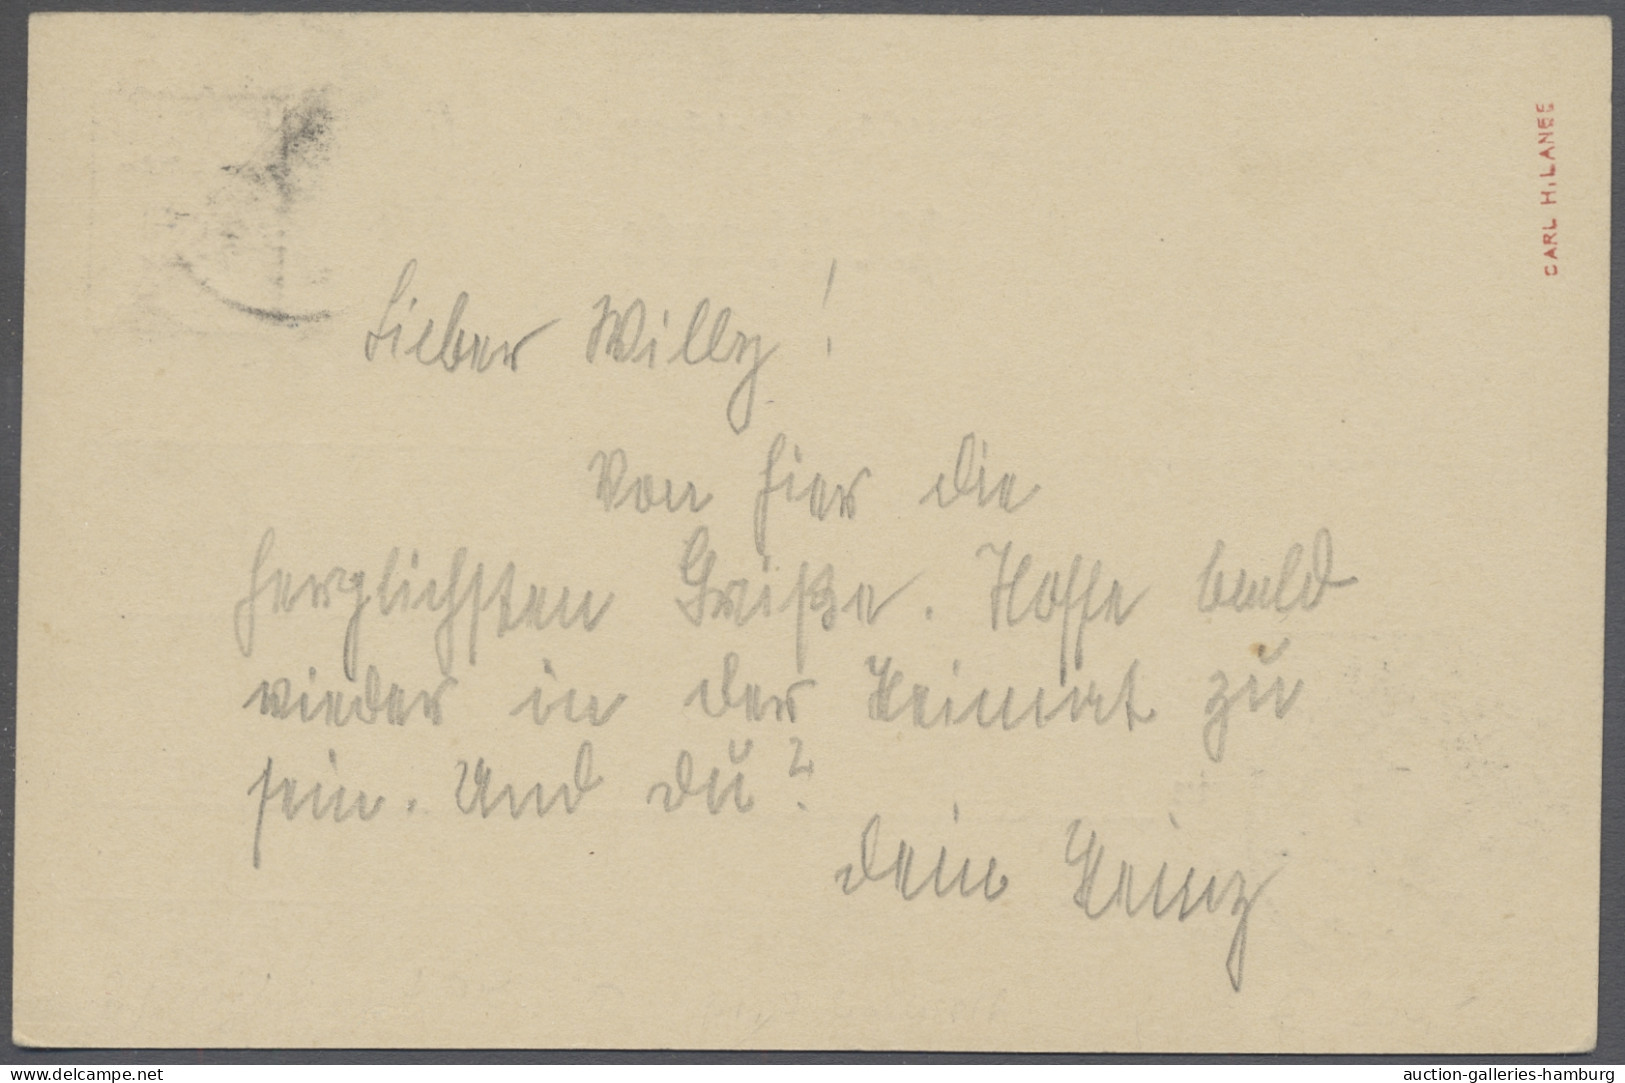 CARL H. LANGE
Lieber Willy!
Von hier die
herzlichsten Grüße. Hoffe bald
wieder in der Heimat zu
sein. Und du?
Dein Heinz
www.delcampe.net
auction-galleries-hamburg